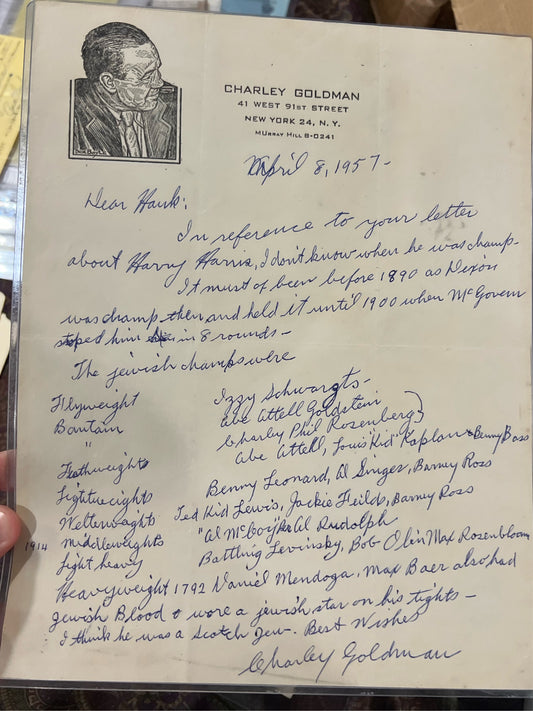 CHARLEY GOLDMAN
41 WEST 91ST STREET
NEW YORK 24, N. Y.
MURRAY HILL 8-0241
April 8, 1957-
Dear Hank:
In reference to your letter
about Harry Harris, I don't know when he was champ-
It must of been before 1890 as Dixon
was champ then and held it until 1900 when McGovern
stoped him in 8 rounds-
The jewish champs were
Flyweight Izzy Schwargts-
Bantam Abe Attell Goldstein
" Charley Phil Rosenberg}
Featherweights Abe Attell, Louis "Kid" Kaplan & Benny Bass
Lightweights Benny Leonard, Al Singer, Barney Ross
Welterweights Ted Kid Lewis, Jackie Fields, Barney Ross
1914 Middleweights "Al McCoy" Al Rudolph
Light heavy Battling Levinsky, Bob Olin Max Rosenbloom
Heavyweight 1792 Daniel Mendoga, Max Baer also had
Jewish Blood & wore a jewish star on his tights-
I think he was a Scotch Jew. Best Wishes
Charley Goldman